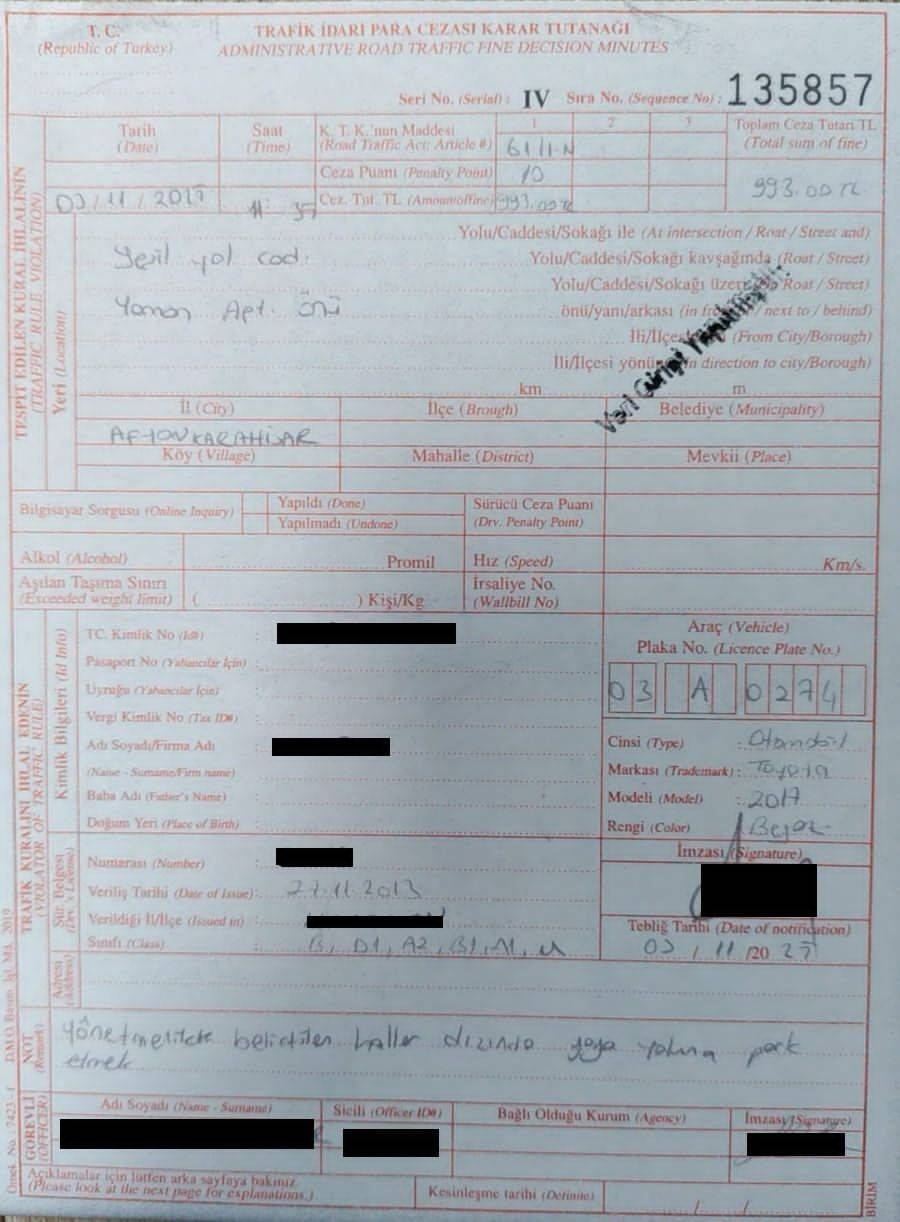 T. C.
(Republic of Turkey)
TRAFİK İDARİ PARA CEZASI KARAR TUTANAĞI
ADMINISTRATIVE ROAD TRAFFIC FINE DECISION MINUTES
Seri No. (Serial) : IV Sıra No. (Sequence No) : 135857
TESPİT EDİLEN KURAL İHLALİNİN
(TRAFFIC RULE VIOLATION)
Tarih
(Date)
Saat
(Time)
K. T. K.'nun Maddesi
(Road Traffic Act: Article #)
1 2 3
61/1-N
Toplam Ceza Tutarı TL
(Total sum of fine)
Ceza Puanı (Penalty Point) 10
993.00 TL
03/11/2025
11:35
Cez. Tut. TL (Amountoffine) 993.00 TL
Yeri (Location)
Yolu/Caddesi/Sokağı ile (At intersection / Roat / Street and)
Yeşil yol cad.
Yolu/Caddesi/Sokağı kavşağında (Rout / Street)
Yolu/Caddesi/Sokağı üzerinde Roat / Street)
Yaman Apt. önü
önü/yanı/arkası (in front / next to / behind)
İli/İlçesinden (From City/Borough)
İli/İlçesi yönüne in direction to city/Borough)
km m
Veri Girişi Yapılmıştır.
İl (City) İlçe (Brough) Belediye (Municipality)
AFYONKARAHİSAR
Köy (Village) Mahalle (District) Mevkii (Place)
Bilgisayar Sorgusu (Online Inquiry)
Yapıldı (Done)
Yapılmadı (Undone)
Sürücü Ceza Puanı
(Drv. Penalty Point)
Alkol (Alcohol) Promil Hız (Speed) Km/s.
Aşılan Taşıma Sınırı
(Exceeded weight limit) ( ) Kişi/Kg
İrsaliye No.
(Wallbill No)
TRAFİK KURALINI İHLAL EDENİN
(VIOLATOR OF TRAFFIC RULE)
Kimlik Bilgileri (Id Info)
TC. Kimlik No (Id#) :
Pasaport No (Yabancılar İçin) :
Uyruğu (Yabancılar İçin) :
Vergi Kimlik No (Tax ID#) :
Adı Soyadı/Firma Adı :
(Name - Surname/Firm name) :
Baba Adı (Father's Name) :
Doğum Yeri (Place of Birth) :
Araç (Vehicle)
Plaka No. (Licence Plate No.)
03 A 0274
Cinsi (Type) : Otomobil
Markası (Trademark) : Toyota
Modeli (Model) : 2017
Rengi (Color) : Beyaz
Sür. Belgesi
(Drv.'s License)
Numarası (Number) :
Veriliş Tarihi (Date of Issue) : 27.11.2013
Verildiği İl/İlçe (Issued in) :
Sınıfı (Class) : B, D1, A2, B1, A1, M
İmzası (Signature)
Tebliğ Tarihi (Date of notification)
03 / 11 /20 25
Adresi
(Address)
NOT
(Remark)
Yönetmelikte belirtilen haller dışında yaya yoluna park
etmek
GÖREVLİ
(OFFICER)
Adı Soyadı (Name - Surname) Sicili (Officer ID#) Bağlı Olduğu Kurum (Agency) İmzası (Signature)
Açıklamalar için lütfen arka sayfaya bakınız
(Please look at the next page for explanations.)
Kesinleşme tarihi (Definite) / /
BİRİM
Örnek No. 7423 - f D.M.O. Basım İşl. Md. 2019